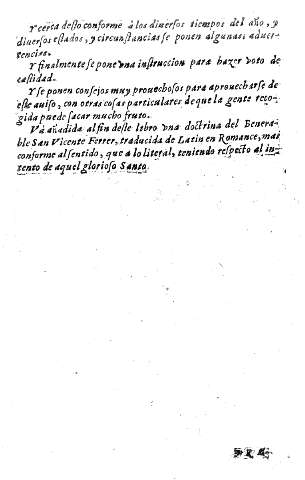 Y cerca desto conforme à los diuersos tiempos del año, y
diuersos estados, y circunstancias se ponen algunas aduer-
tencias.
Y finalmente se pone vna instruccion para hazer voto de
castidad.
Y se ponen consejos muy prouechosos para aprouecharse de
este auiso, con otras cosas particulares de que la gente reco-
gida puede sacar mucho fruto.
Và añadida al fin deste libro vna doctrina del Venera-
ble San Vicente Ferrer, traducida de Latin en Romance, mas
conforme al sentido, que a lo literal, teniendo respecto al in-
tento de aquel glorioso Santo.